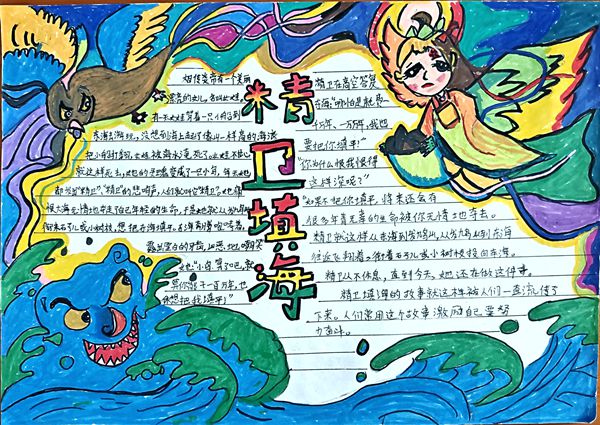 精卫填海
相传炎帝有一个美丽
的女儿,名叫女娃,
有一天女娃驾着一只小船到
东海去游玩,没想到海上起了像山一样高的海浪
把小船打翻,女娃被海水淹死了。女娃不甘心
就这样死去,她的灵魂变成了一只小鸟,
都发出"精卫""精卫"的悲鸣声,人们就叫它"精卫"。她
恨大海无情地夺走自己年轻的生命,于是她
石子儿或小树枝,想把东海填平。
露出雪白的牙齿,凶恶地嘲笑
她:"小鸟,算了吧,就
算你干一百万年,也
休想把我填平!"
精卫在高空答复
东海:"哪怕是就是干
一千万年、一万万年,我也
要把你填平!"
"你为什么恨我恨得
这样深呢?"
"如果不把你填平,将来还会有
很多年青无辜的生命被你无情地夺去。
精卫就这样从东海到发鸠山,从发鸠山到东海
往返飞翔着,衔着石子儿或小树枝投向东海。
精卫从不休息,直到今天,她还在做这件事。
精卫填海的故事就这样被人们一直流传了
下来。人们常用这个故事激励自己要努
力奋斗。